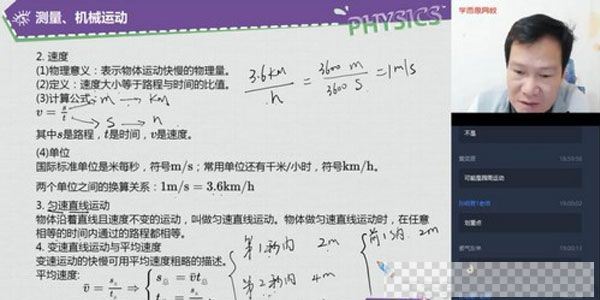 测量、机械运动
PHYSICS
学而思网校
2. 速度
(1)物理意义：表示物体运动快慢的物理量。
(2)定义：速度大小等于路程与时间的比值。
(3)计算公式：
m → km
v = s/t
s → h
3.6km/h = 3600 m/3600 s = 1m/s
其中s是路程，t是时间，v是速度。
(4)单位
国际标准单位是米每秒，符号m/s；常用单位还有千米/小时，符号km/h。
两个单位之间的换算关系：1m/s = 3.6km/h
3. 匀速直线运动
物体沿着直线且速度不变的运动，叫做匀速直线运动。物体做匀速直线运动时，在任意
相等的时间内通过的路程都相等。
4. 变速直线运动与平均速度
变速运动的快慢可用平均速度粗略的描述。
平均速度：
第1秒内 2m
第2秒内 4m
前1s内 2m
不是
18:59:56
可能是圆周运动
19:00:02
划重点
19:00:11